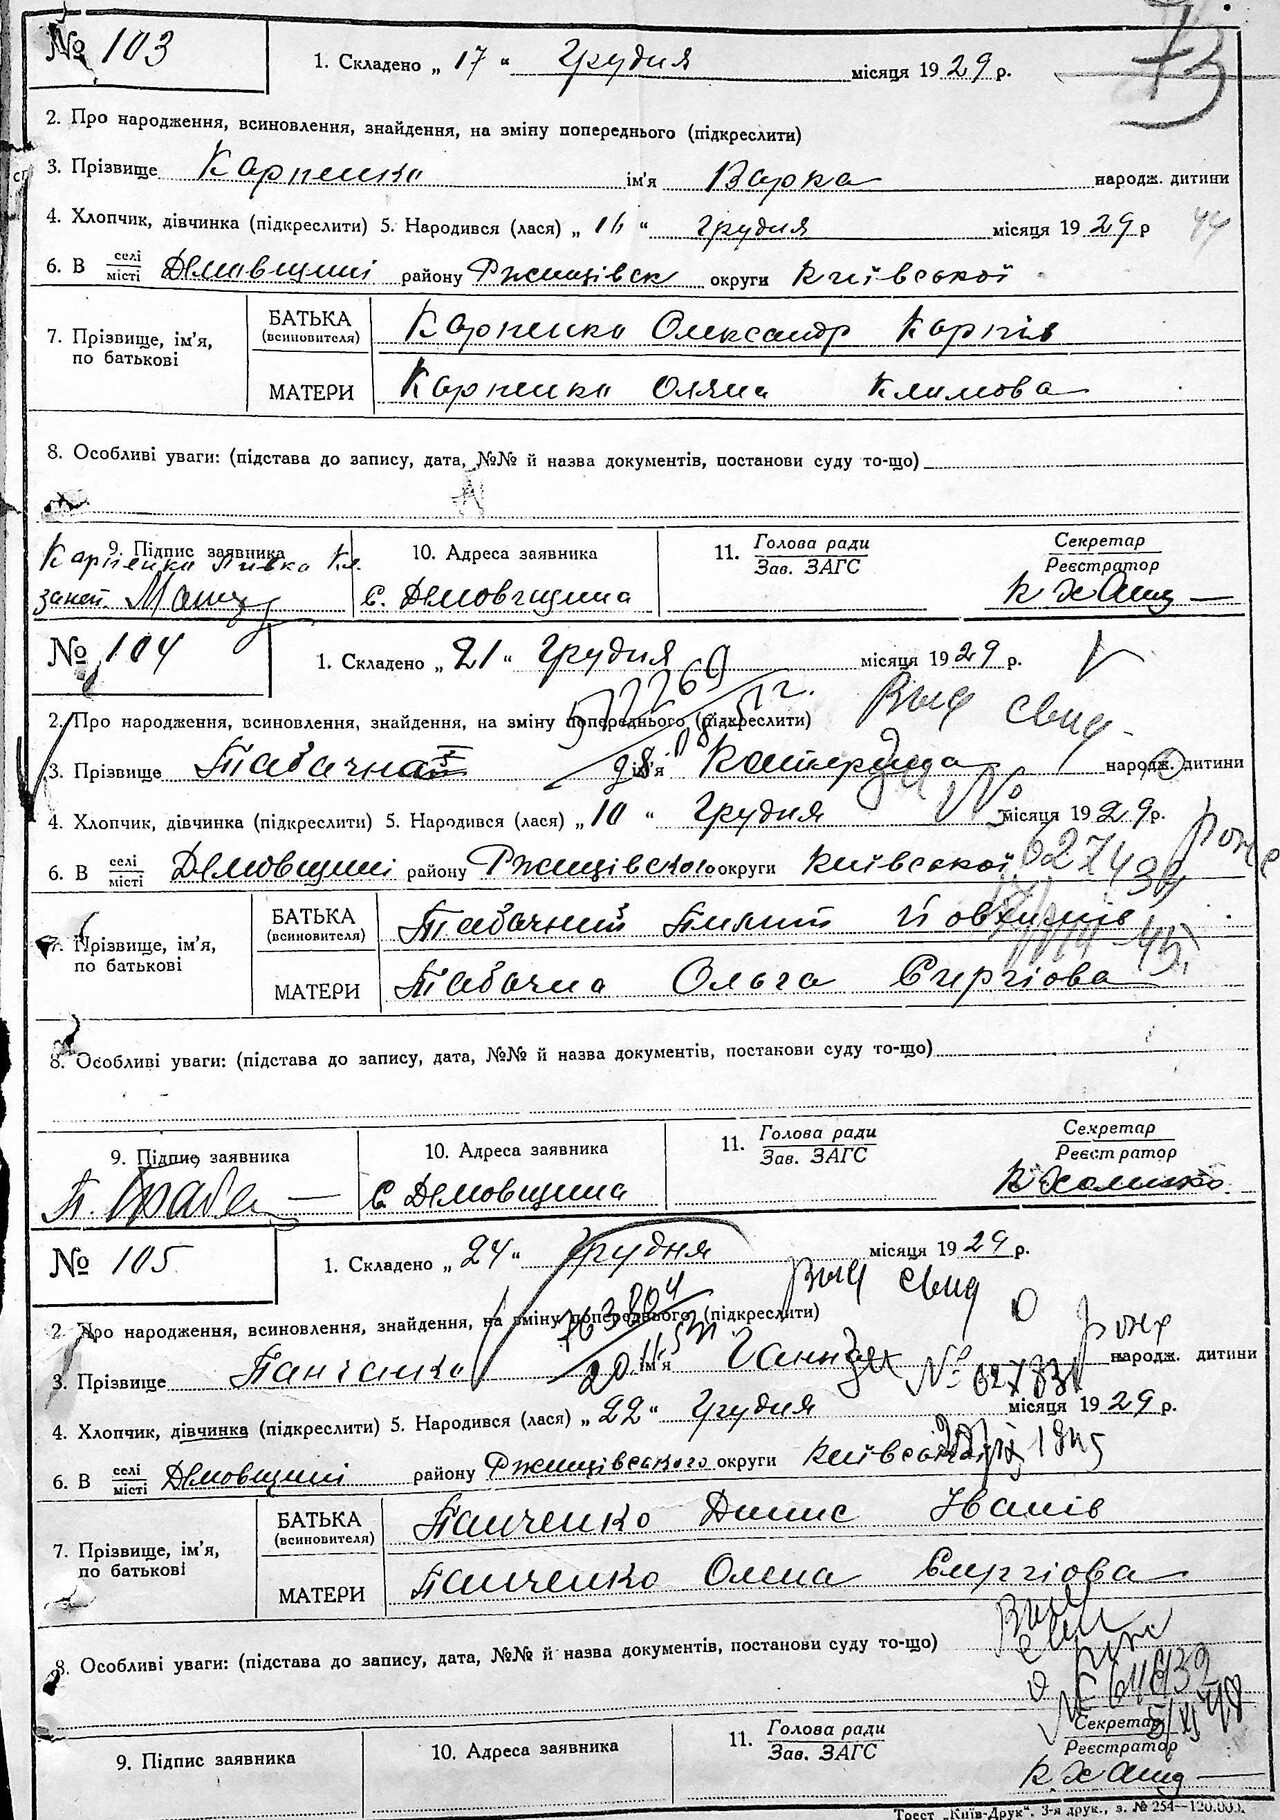 73
№ 103
1. Складено „ 17 “ Грудня місяця 1929 р.
2. Про народження, всиновлення, знайдення, на зміну попереднього (підкреслити)
3. Прізвище Карпенко ім'я Варка народж. дитини
4. Хлопчик, дівчинка (підкреслити) 5. Народився (лася) „ 16 “ грудня місяця 1929 р
6. В селі/місті Демовщині району Ржищівськ округи Київської
7. Прізвище, ім'я, по батькові
БАТЬКА (всиновителя) Карпенко Олександр Карпів
МАТЕРИ Карпенко Оляна Климова
8. Особливі уваги: (підстава до запису, дата, №№ й назва документів, постанови суду то-що)
9. Підпис заявника 10. Адреса заявника 11. Голова ради/Зав. ЗАГС Секретар/Реєстратор
Карпенко Кл.
с. Демовщина
№ 104
1. Складено „ 21 “ Грудня місяця 1929 р.
2. Про народження, всиновлення, знайдення, на зміну попереднього (підкреслити) Выд свид
3. Прізвище Табачна ім'я Катерина народж. дитини
4. Хлопчик, дівчинка (підкреслити) 5. Народився (лася) „ 10 “ Грудня місяця 1929 р.
6. В селі/місті Демовщині району Ржищівського округи Київської
7. Прізвище, ім'я, по батькові
БАТЬКА (всиновителя) Табачний Пилип Йовхимів
МАТЕРИ Табачна Ольга Сергіова
8. Особливі уваги: (підстава до запису, дата, №№ й назва документів, постанови суду то-що)
9. Підпис заявника 10. Адреса заявника 11. Голова ради/Зав. ЗАГС Секретар/Реєстратор
с. Демовщина
№ 105
1. Складено „ 24 “ Грудня місяця 1929 р.
Выд свид
2. Про народження, всиновлення, знайдення, на зміну попереднього (підкреслити) о рожд
3. Прізвище Панченко ім'я Ганна № народж. дитини
4. Хлопчик, дівчинка (підкреслити) 5. Народився (лася) „ 22 “ Грудня місяця 1929 р.
6. В селі/місті Демовщині району Ржищівського округи Київської
7. Прізвище, ім'я, по батькові
БАТЬКА (всиновителя) Панченко Динис Іванів
МАТЕРИ Панченко Олена Сергіова
8. Особливі уваги: (підстава до запису, дата, №№ й назва документів, постанови суду то-що)
9. Підпис заявника 10. Адреса заявника 11. Голова ради/Зав. ЗАГС Секретар/Реєстратор
Трест „Київ-Друк“. 3-я друк., з. № 254—120.000.